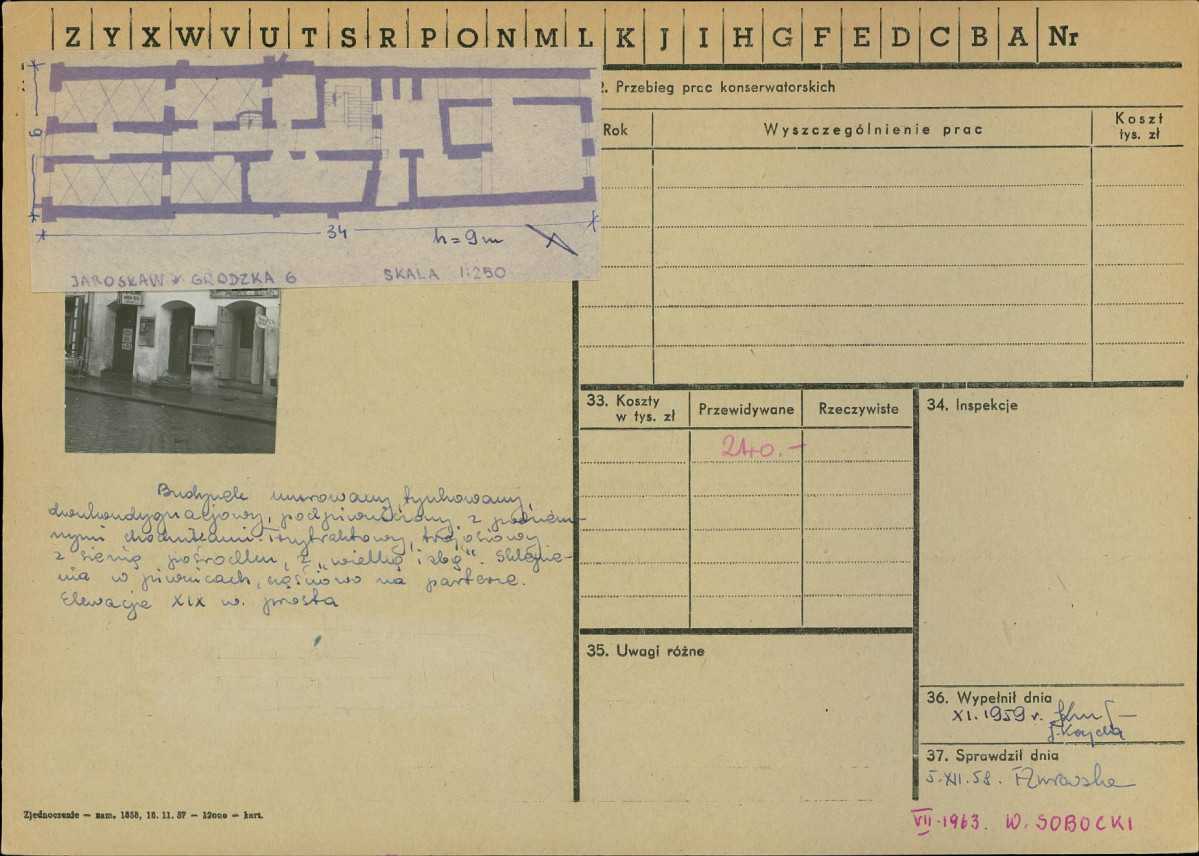 Z Y X W V U T S R P O N M L K J I H G F E D C B A Nr
9
34
h = 9 m
JAROSŁAW GRODZKA 6 SKALA 1:250
Budynek murowany, tynkowany,
dwukondygnacjowy, podpiwniczony z podziem-
nymi chodnikami. Trzytraktowy, trójosiowy
z sienią pośrodku, z "wielką izbą". Sklepie-
nia w piwnicach, częściowo na parterze.
Elewacje XIX w. prosta
Zjednoczenie — zam. 1858, 18. 11. 57 — 12000 — kart.
2. Przebieg prac konserwatorskich
Rok Wyszczególnienie prac Koszt tys. zł
33. Koszty w tys. zł Przewidywane Rzeczywiste
240.-
34. Inspekcje
35. Uwagi różne
36. Wypełnił dnia
XI. 1959 r.
37. Sprawdził dnia
5.XII.58.
VII.1963. W. SOBOCKI